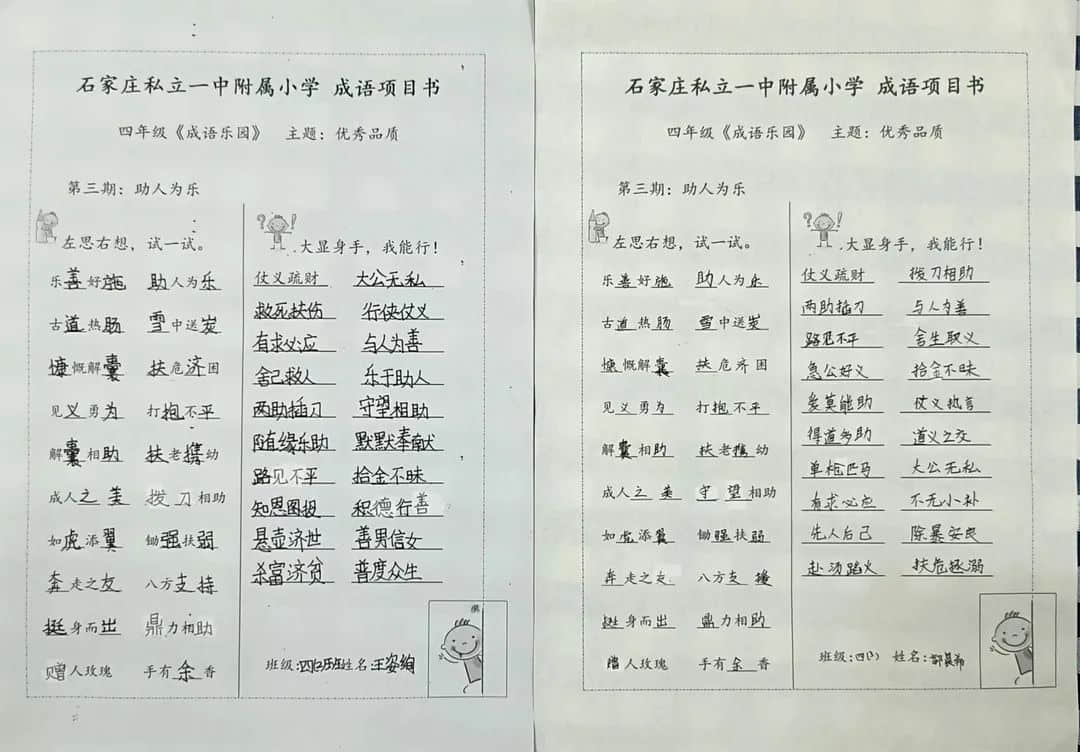 石家庄私立一中附属小学 成语项目书
四年级《成语乐园》 主题：优秀品质
第三期：助人为乐
左思右想，试一试。
乐善好施 助人为乐
古道热肠 雪中送炭
慷慨解囊 扶危济困
见义勇为 打抱不平
解囊相助 扶老携幼
成人之美 拔刀相助
如虎添翼 锄强扶弱
奔走之友 八方支持
挺身而出 鼎力相助
赠人玫瑰 手有余香
?!
大显身手，我能行！
仗义疏财 大公无私
救死扶伤 行侠仗义
有求必应 与人为善
舍己救人 乐于助人
两助插刀 守望相助
随缘乐助 默默奉献
路见不平 拾金不昧
知恩图报 积德行善
悬壶济世 善男信女
杀富济贫 普度众生
班级：四 班姓名：王姿绚
石家庄私立一中附属小学 成语项目书
四年级《成语乐园》 主题：优秀品质
第三期：助人为乐
左思右想，试一试。
乐善好施 助人为乐
古道热肠 雪中送炭
慷慨解囊 扶危济困
见义勇为 打抱不平
解囊相助 扶老携幼
成人之美 守望相助
如虎添翼 锄强扶弱
奔走之友 八方支援
挺身而出 鼎力相助
赠人玫瑰 手有余香
?!
大显身手，我能行！
仗义疏财 拔刀相助
两助插刀 与人为善
路见不平 舍生取义
急公好义 拾金不昧
爱莫能助 仗义执言
得道多助 道义之交
单枪匹马 大公无私
有求必应 不无小补
先人后己 除暴安良
赴汤蹈火 扶危拯溺
班级：四(1) 姓名：